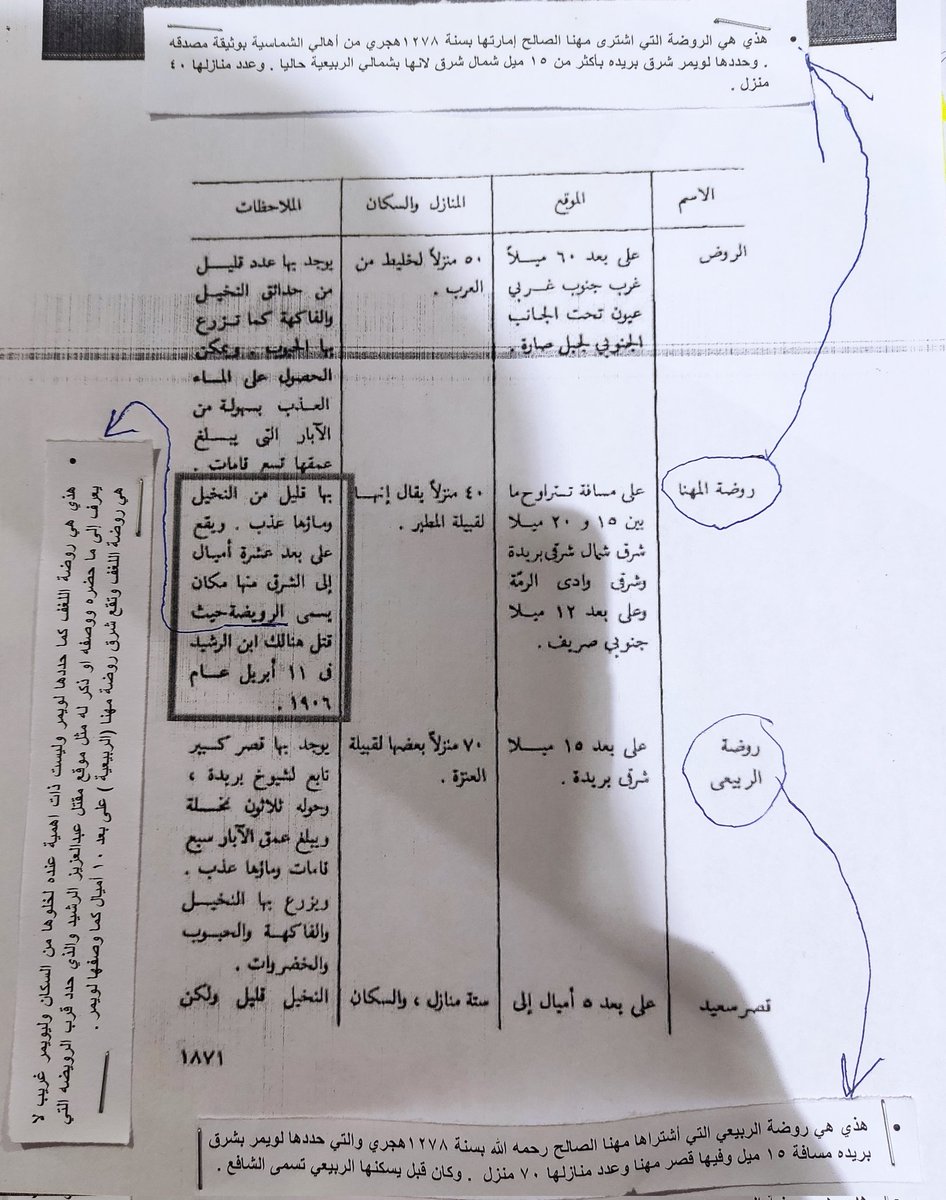 هذي هي الروضة التي اشترى مهنا الصالح إمارتها بسنة ١٢٧٨هجري من أهالي الشماسية بوثيقة مصدقه
. وحددها لويمر شرق بريده بأكثر من ١٥ ميل شمال شرق لانها بشمالي الربيعية حاليا . وعدد منازلها ٤٠
منزل .
الاسم
الموقع
المنازل والسكان
الملاحظات
الروض
على بعد ٦٠ ميـلاً
غرب جنوب غـربي
عيون تحت الجانب
الجنوبي لجبل صارة .
٥٠ منزلاً لخليط من
العرب .
يوجد بها عدد قليـل
من حدائق النخيـل
والفاكهة كما تـزرع
بها الحبوب . ويمكن
الحصول على المـاء
العـذب بسهولة من
الآبار التى يبـلغ
عمقها تسع قامات .
روضة المهنا
على مسافة تـتراوح ما
بين ١٥ و ٢٠ ميـلا
شرق شمال شرقى بريدة
وشرقى وادى الرمّة
وعلى بعد ١٢ ميـلا
جنوبي صريف .
٤٠ منزلاً يقال إنهـا
لقبيلة المطير .
بها قليل من النخيل
وماؤها عذب . ويقع
على بعد عشرة أميال
إلى الشرق منها مكان
يسمى الرويضة حيث
قتل هنالك ابن الرشيد
فى ١١ أبريل عـام
١٩٠٦ .
روضة
الربيعى
على بعد ١٥ ميـلا
شرقى بريدة .
٧٠ منزلاً بعضها لقبيلة
العنزة .
يوجد بها قصر كبير
تابع لشيوخ بريدة ،
وحوله ثلاثون نخـلة
ويبلغ عمق الآبار سبع
قامات وماؤها عذب .
ويزرع بها النخيـل
والفاكهـة والحبوب
والخضروات .
قصر سعيد
على بعد ٥ أميال إلى
ستة منازل ، والسكان
النخيل قليل ولكن
١٨٧١
هذي هي روضة اللغف كما حددها لويمر وليست ذات اهمية عنده لخلوها من السكان وليويمر غريب لا
يعرف إلى ما حضره ووصفه او ذكر له مثل موقع مقتل عبدالعزيز الرشيد والذي حدد قرب الرويضه التي
هي روضة اللغف وتقع شرق روضة مهنا (الربيعية ) على بعد ١٠ أميال كما وصفها لويمر .
هذي هي روضة الربيعي التي اشتراها مهنا الصالح رحمه الله بسنة ١٢٧٨هجري والتي حددها لويمر بشرق
بريده مسافة ١٥ ميل وفيها قصر مهنا وعدد منازلها ٧٠ منزل . وكان قبل يسكنها الربيعي تسمى الشافع .